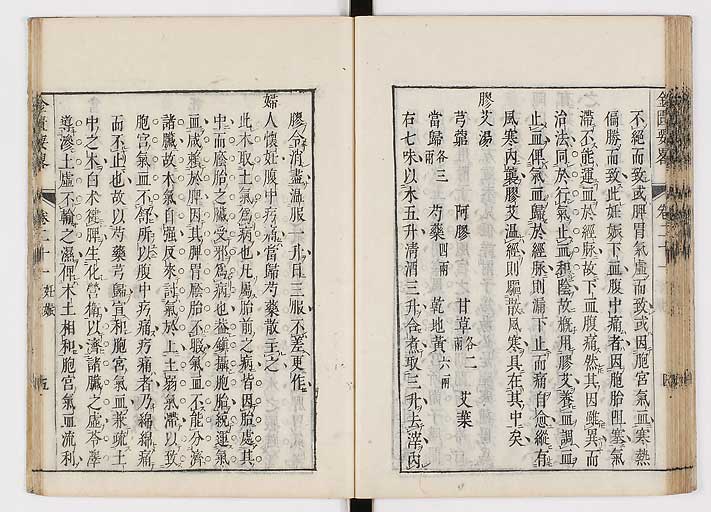 不絕而致或脾胃氣虛而致或因胞宮氣血寒熱
偏勝而致此妊娠下血腹中痛者因胞胎阻塞氣
滯不能運血於經脉故下血腹痛然其因雖異而
治法同於行氣止血和陰故概用膠艾養血調血
止血俾氣血歸於經脉則漏下止而痛自愈縱有
風寒内襲膠艾温經則驅散風寒具在其中矣
膠艾湯
芎藭 阿膠 甘草各二兩 艾葉
當歸各三兩 芍藥四兩 乾地黃六兩
右七味以水五升清酒三升合煮取三升去滓内
金匱要畧 卷二十一
膠令消盡温服一升日三服不差更作
婦人懷妊腹中㽲痛當歸芍藥散主之
此木取土氣為病也凡屬胎前之病皆因胎處其
中而應胎之臟受邪為病也蓋鎮攝胞胎統運氣
血咸賴於脾因其脾胃應胎不暇氣血不能分濟
諸臟故木氣自强反來討氣於上土弱氣滯以致
胞宮氣血不舒所以腹中㽲痛㽲痛者乃綿綿痛
而不止也故以芍藥芎歸宣和胞宮氣血兼疏土
中之木白术健脾生化營衛以濟諸臟之虛苓澤
導滲土虛不輸之濕俾木土相和胞宮氣血流利
金匱要畧 卷二十一 妊娠 五